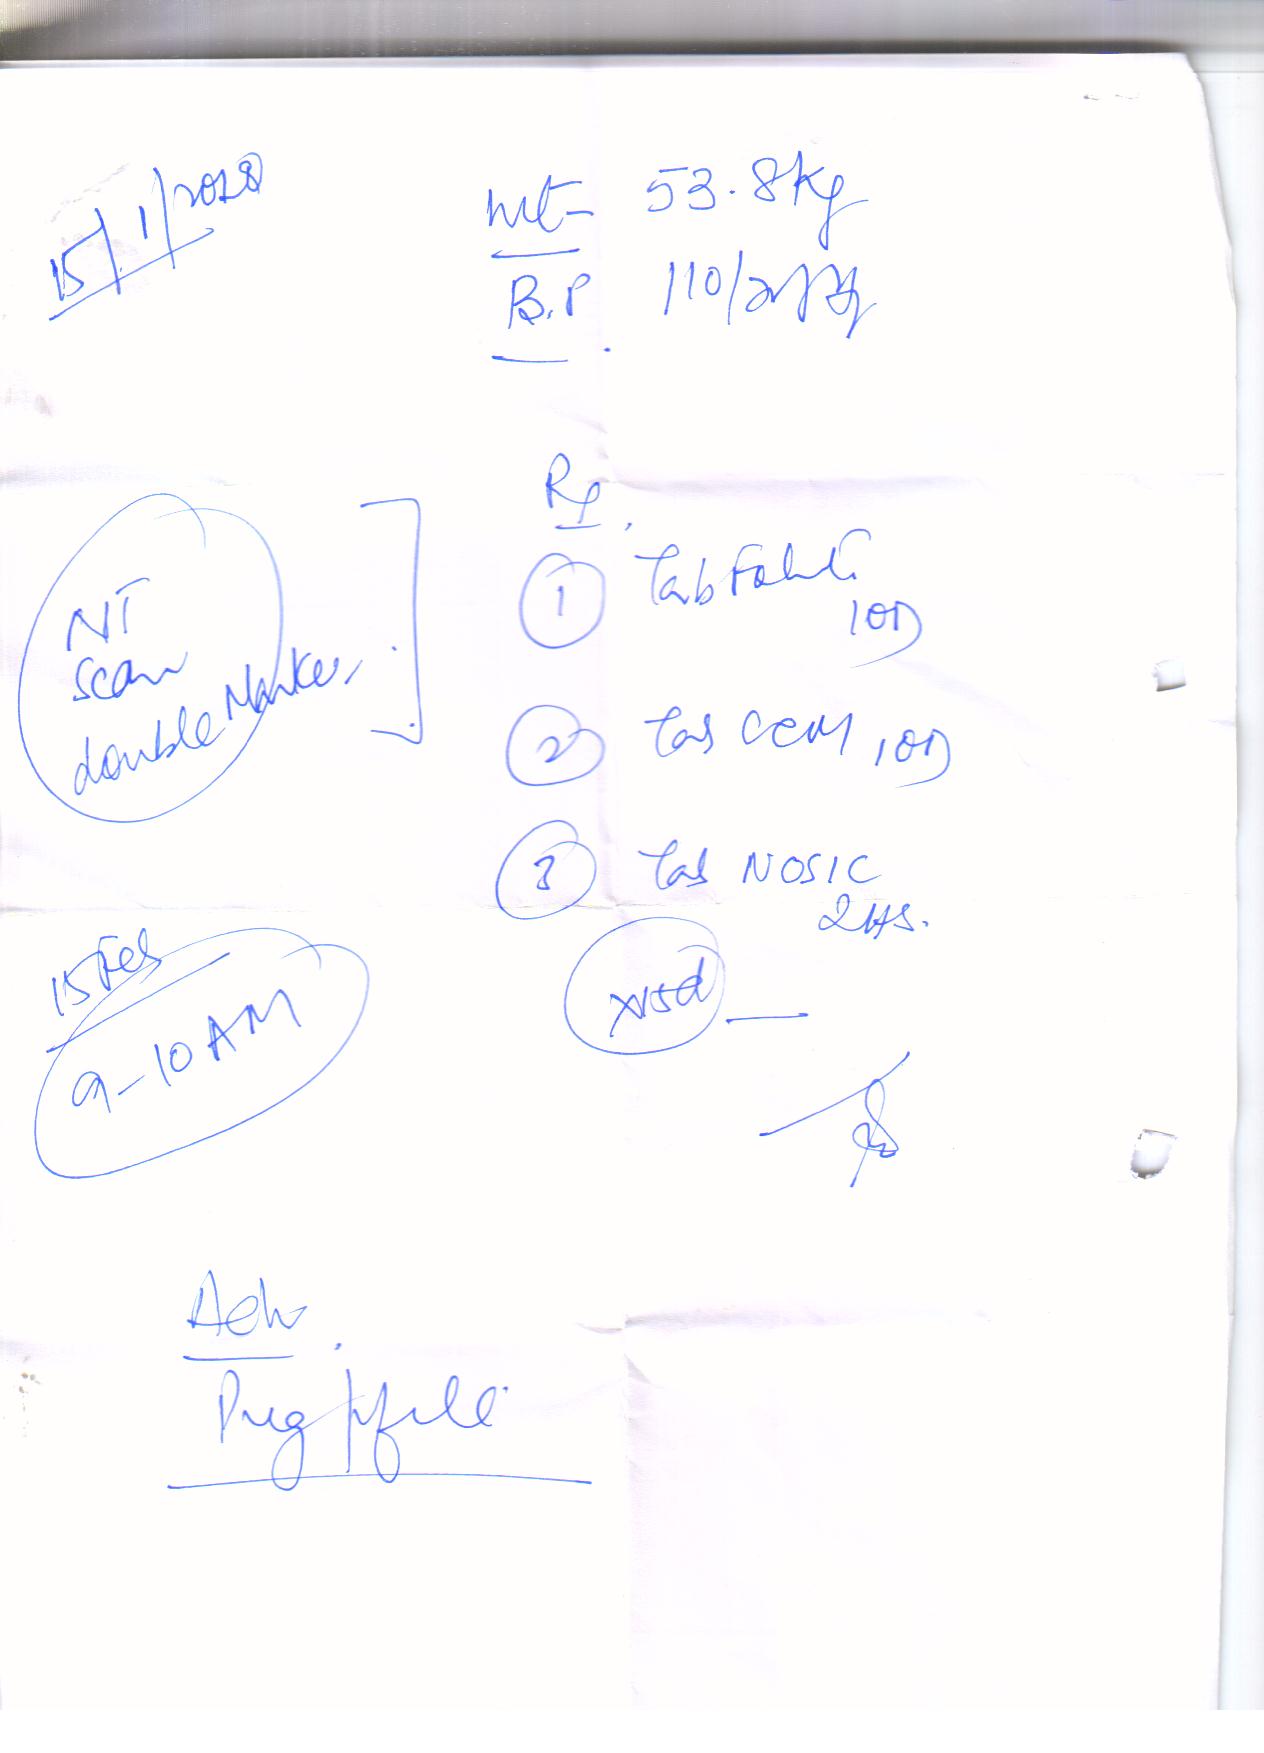 15/1/2018
wt- 53.8kg
B.P 110/
Rx
NT
Scan
double Marker
1 Tab
1OD
2 Tab CCM 1OD
3 Tab NOSIC
2HS.
x15d
15 Feb
9-10AM
Adv
Preg profile